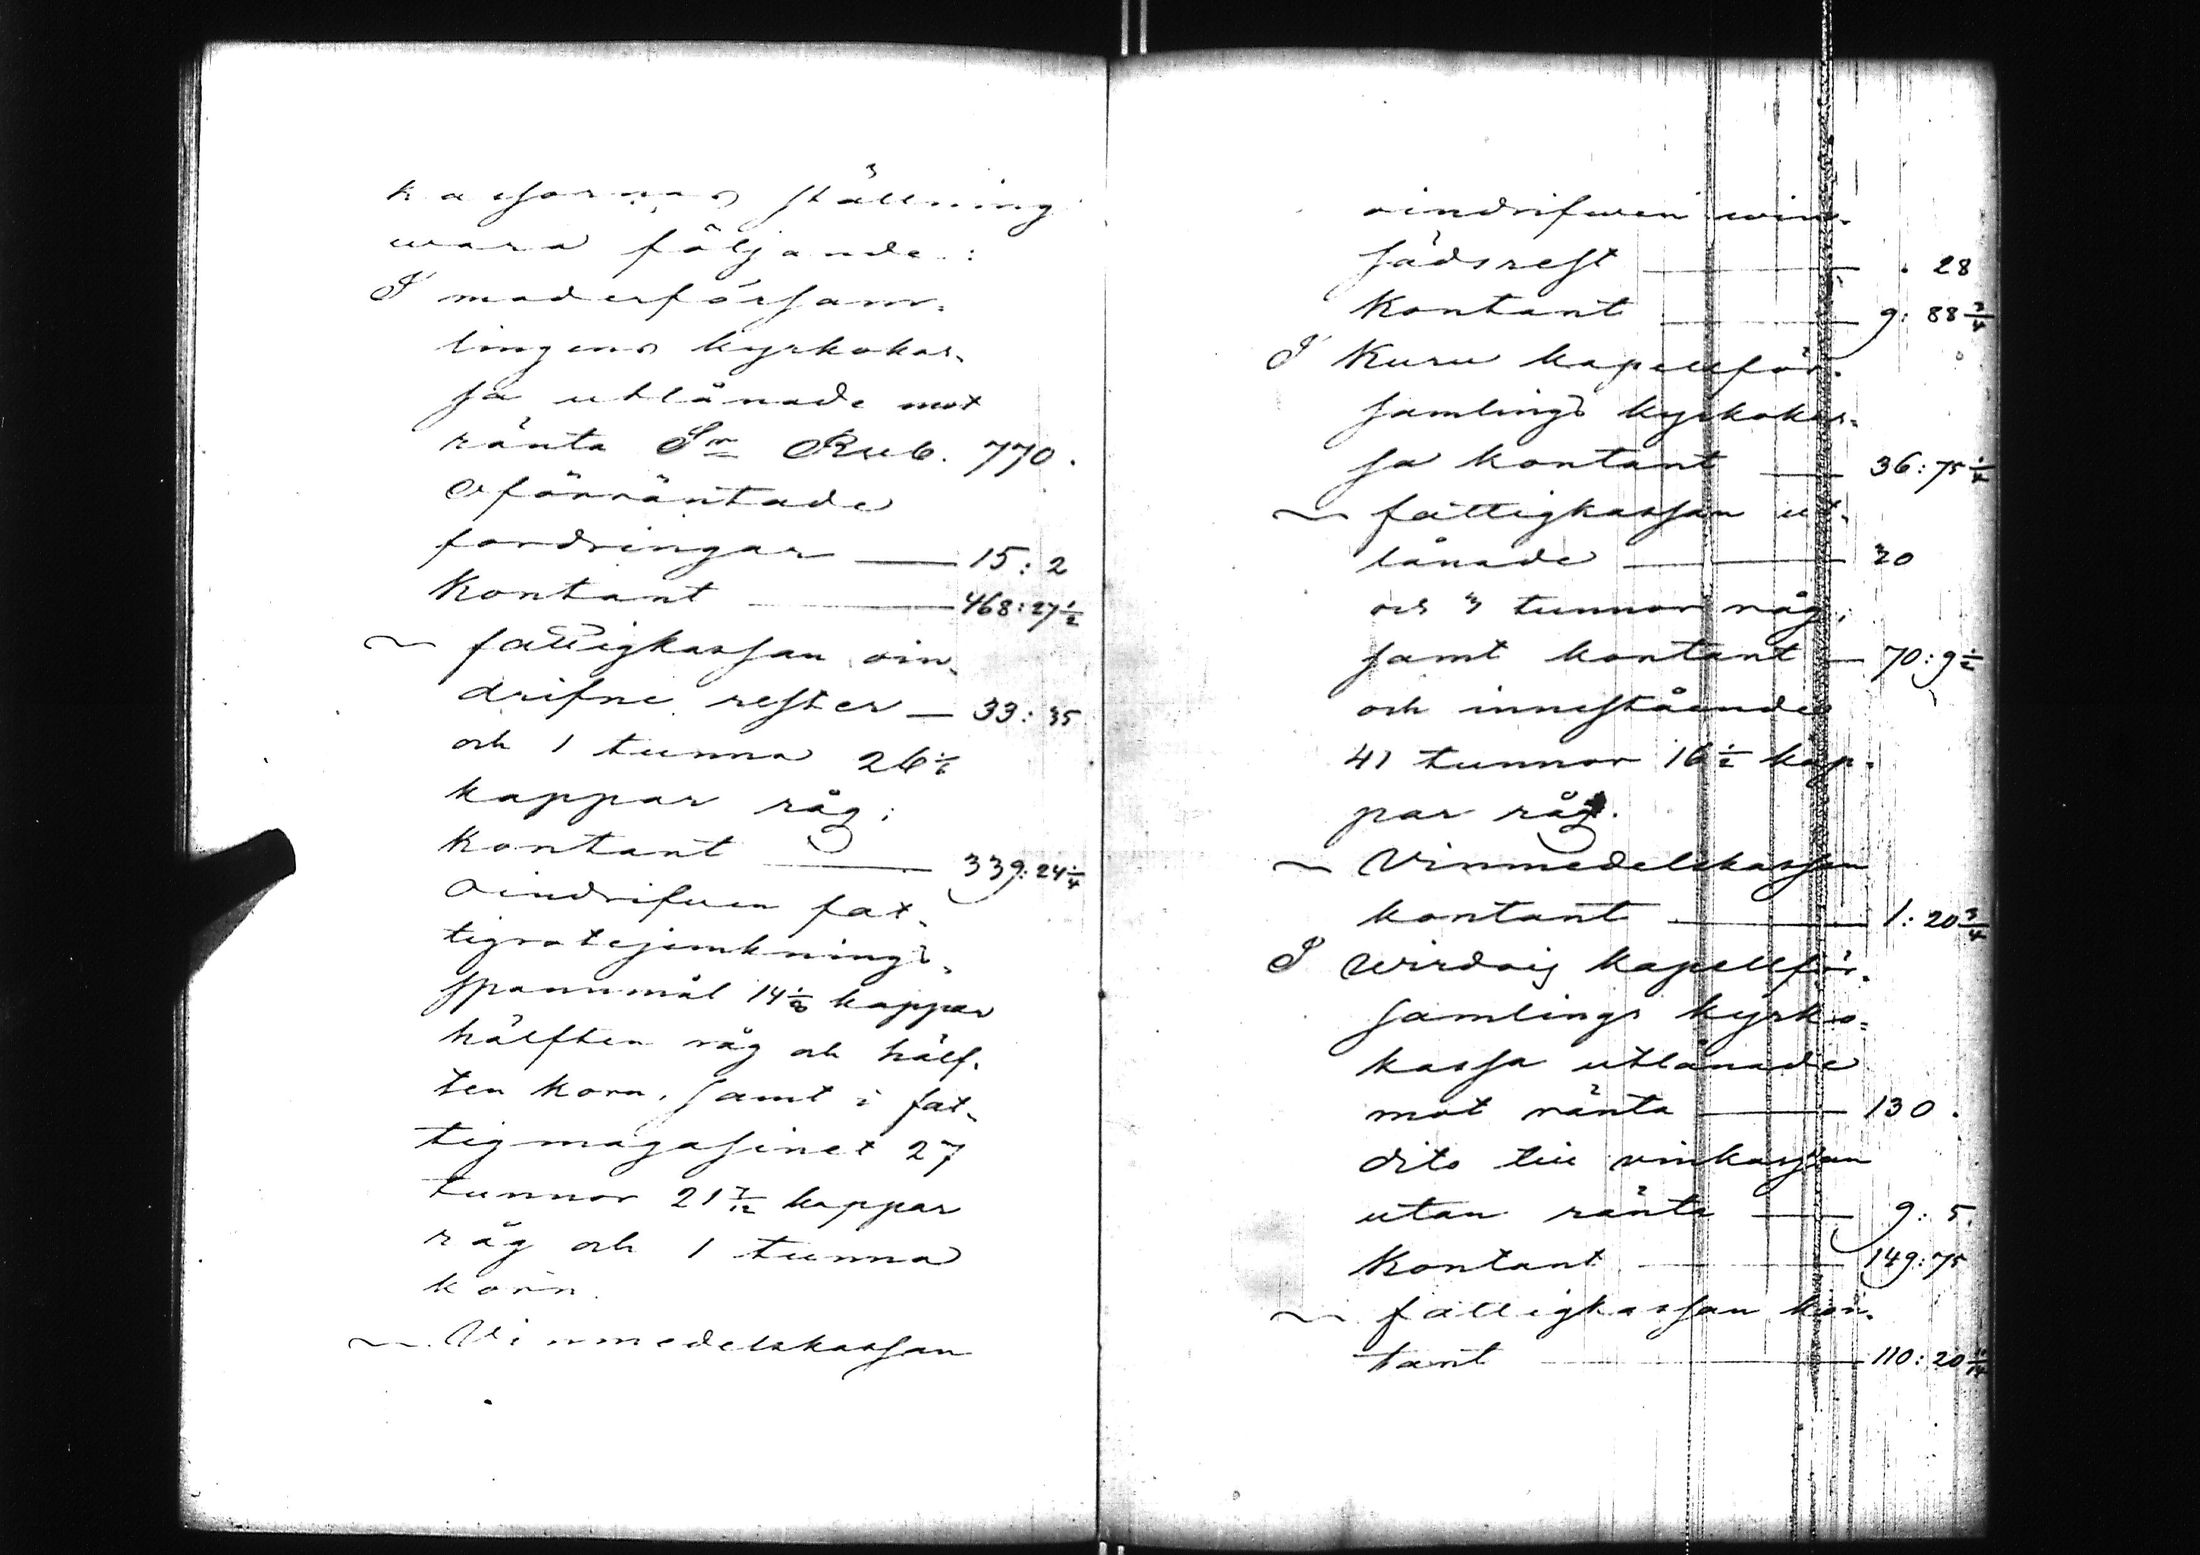 kassornas ställning
wara följande:
I moderförsam-
lingens kyrkokas-
sa utlånade mot
ränta Sr Rub. 770.
Oförräntade
fordringar — 15: 2
Kontant — 468: 27 1/2
~ fattigkassan oin-
drifne rester — 33: 35
och 1 tunna 26 1/6
kappar råg;
Kontant — 339: 24 1/4
Oindrifven fat-
tigvotejemknings-
spannmål 14 1/2 kappar
hälften råg och hälf-
ten korn, samt i fat-
tigmagasinet 27
tunnor 21 7/12 kappar
råg och 1 tunna
korn.
~ Vinmedelskassan
oindrifven vin-
sädsrest — . 28
Kontant — 9: 88 3/4
I Kuru kapellför-
samlings kyrkokas-
sa kontant — 36: 75 1/4
~ fattigkassan ut-
lånade — 30
och 3 tunnor råg,
samt kontant — 70: 9 1/2
och innestående
41 tunnor 16 1/2 kap-
par råg.
~ Vinmedelskassan
kontant — 1: 20 3/4
I Wirdois kapellför-
samlings kyrko-
kassa utlånade
mot ränta — 130.
dito till vinkassan
utan ränta — 9: 5.
Kontant — 149: 75
~ fattigkassan kon-
tant — 110: 20